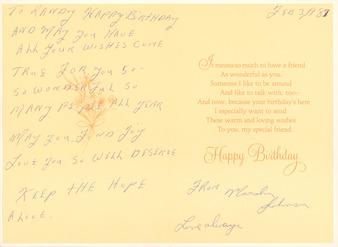 To Randy Happy Birthday
And May You Have
All Your Wishes Come
True For You So-
So Wonderful So
Many People All Year
May You Find Joy
Love You So Well Deserve
Keep the Hope
Alive.
Feb 3/87
It means so much to have a friend
As wonderful as you,
Someone I like to be around
And like to talk with, too-
And now, because your birthday's here
I especially want to send
These warm and loving wishes
To you, my special friend.
Happy Birthday
From
Johnson
Love always